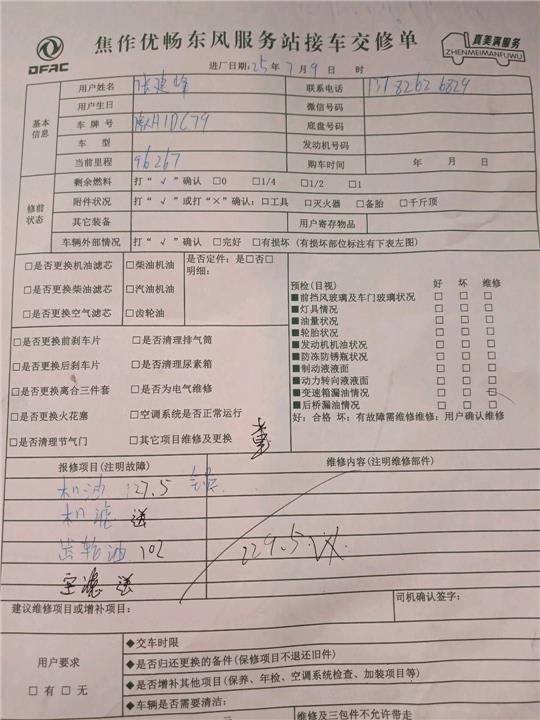 DFAC
焦作优畅东风服务站接车交修单
真美满服务
ZHENMEIMANFUWU
进厂日期:25年7月9日 时
基本信息
用户姓名 联系电话 137 8262 6829
用户生日 微信号码
车牌号 H1DC79 底盘号码
车型 发动机号码
当前里程 96267 购车时间 年 月 日
修前状态
剩余燃料 打“√”确认 □0 □1/4 □1/2 □1
附件状况 打“√”或打“×”确认:□工具 □灭火器 □备胎 □千斤顶
其它装备 用户寄存物品
车辆外部情况 打“√”确认 □完好 □有损坏(有损坏部位标注有下表左图)
□是否更换机油滤芯 □柴油机油 是否定件:是□否□
明细:
□是否更换柴油滤芯 □汽油机油
□是否更换空气滤芯 □齿轮油
预检(目视) 好 坏 维修
■前挡风玻璃及车门玻璃状况 □ □ □
■灯具情况 □ □ □
■油量状况 □ □ □
■轮胎状况 □ □ □
■发动机机油状况 □ □ □
■防冻防锈瓶状况 □ □ □
■制动液液面 □ □ □
■动力转向液液面 □ □ □
■变速箱漏油情况 □ □ □
■后桥漏油情况 □ □ □
好:合格 坏:有故障需维修维修:用户确认维修
□是否更换前刹车片 □是否清理排气筒
□是否更换后刹车片 □是否清理尿素箱
□是否更换离合三件套 □是否为电气维修
□是否更换火花塞 □空调系统是否正常运行
□是否清理节气门 □其它项目维修及更换
报修项目(注明故障) 维修内容(注明维修部件)
机油 127.5
机滤 送
齿轮油 102 229.5
空滤 送
建议维修项目或增补项目: 司机确认签字:
用户要求
□有 □无
◆交车时限
◆是否归还更换的备件(保修项目不退还旧件)
◆是否增补其他项目(保养、年检、空调系统检查、加装项目等)
◆车辆是否需要清洁:
维修及三包件不允许带走